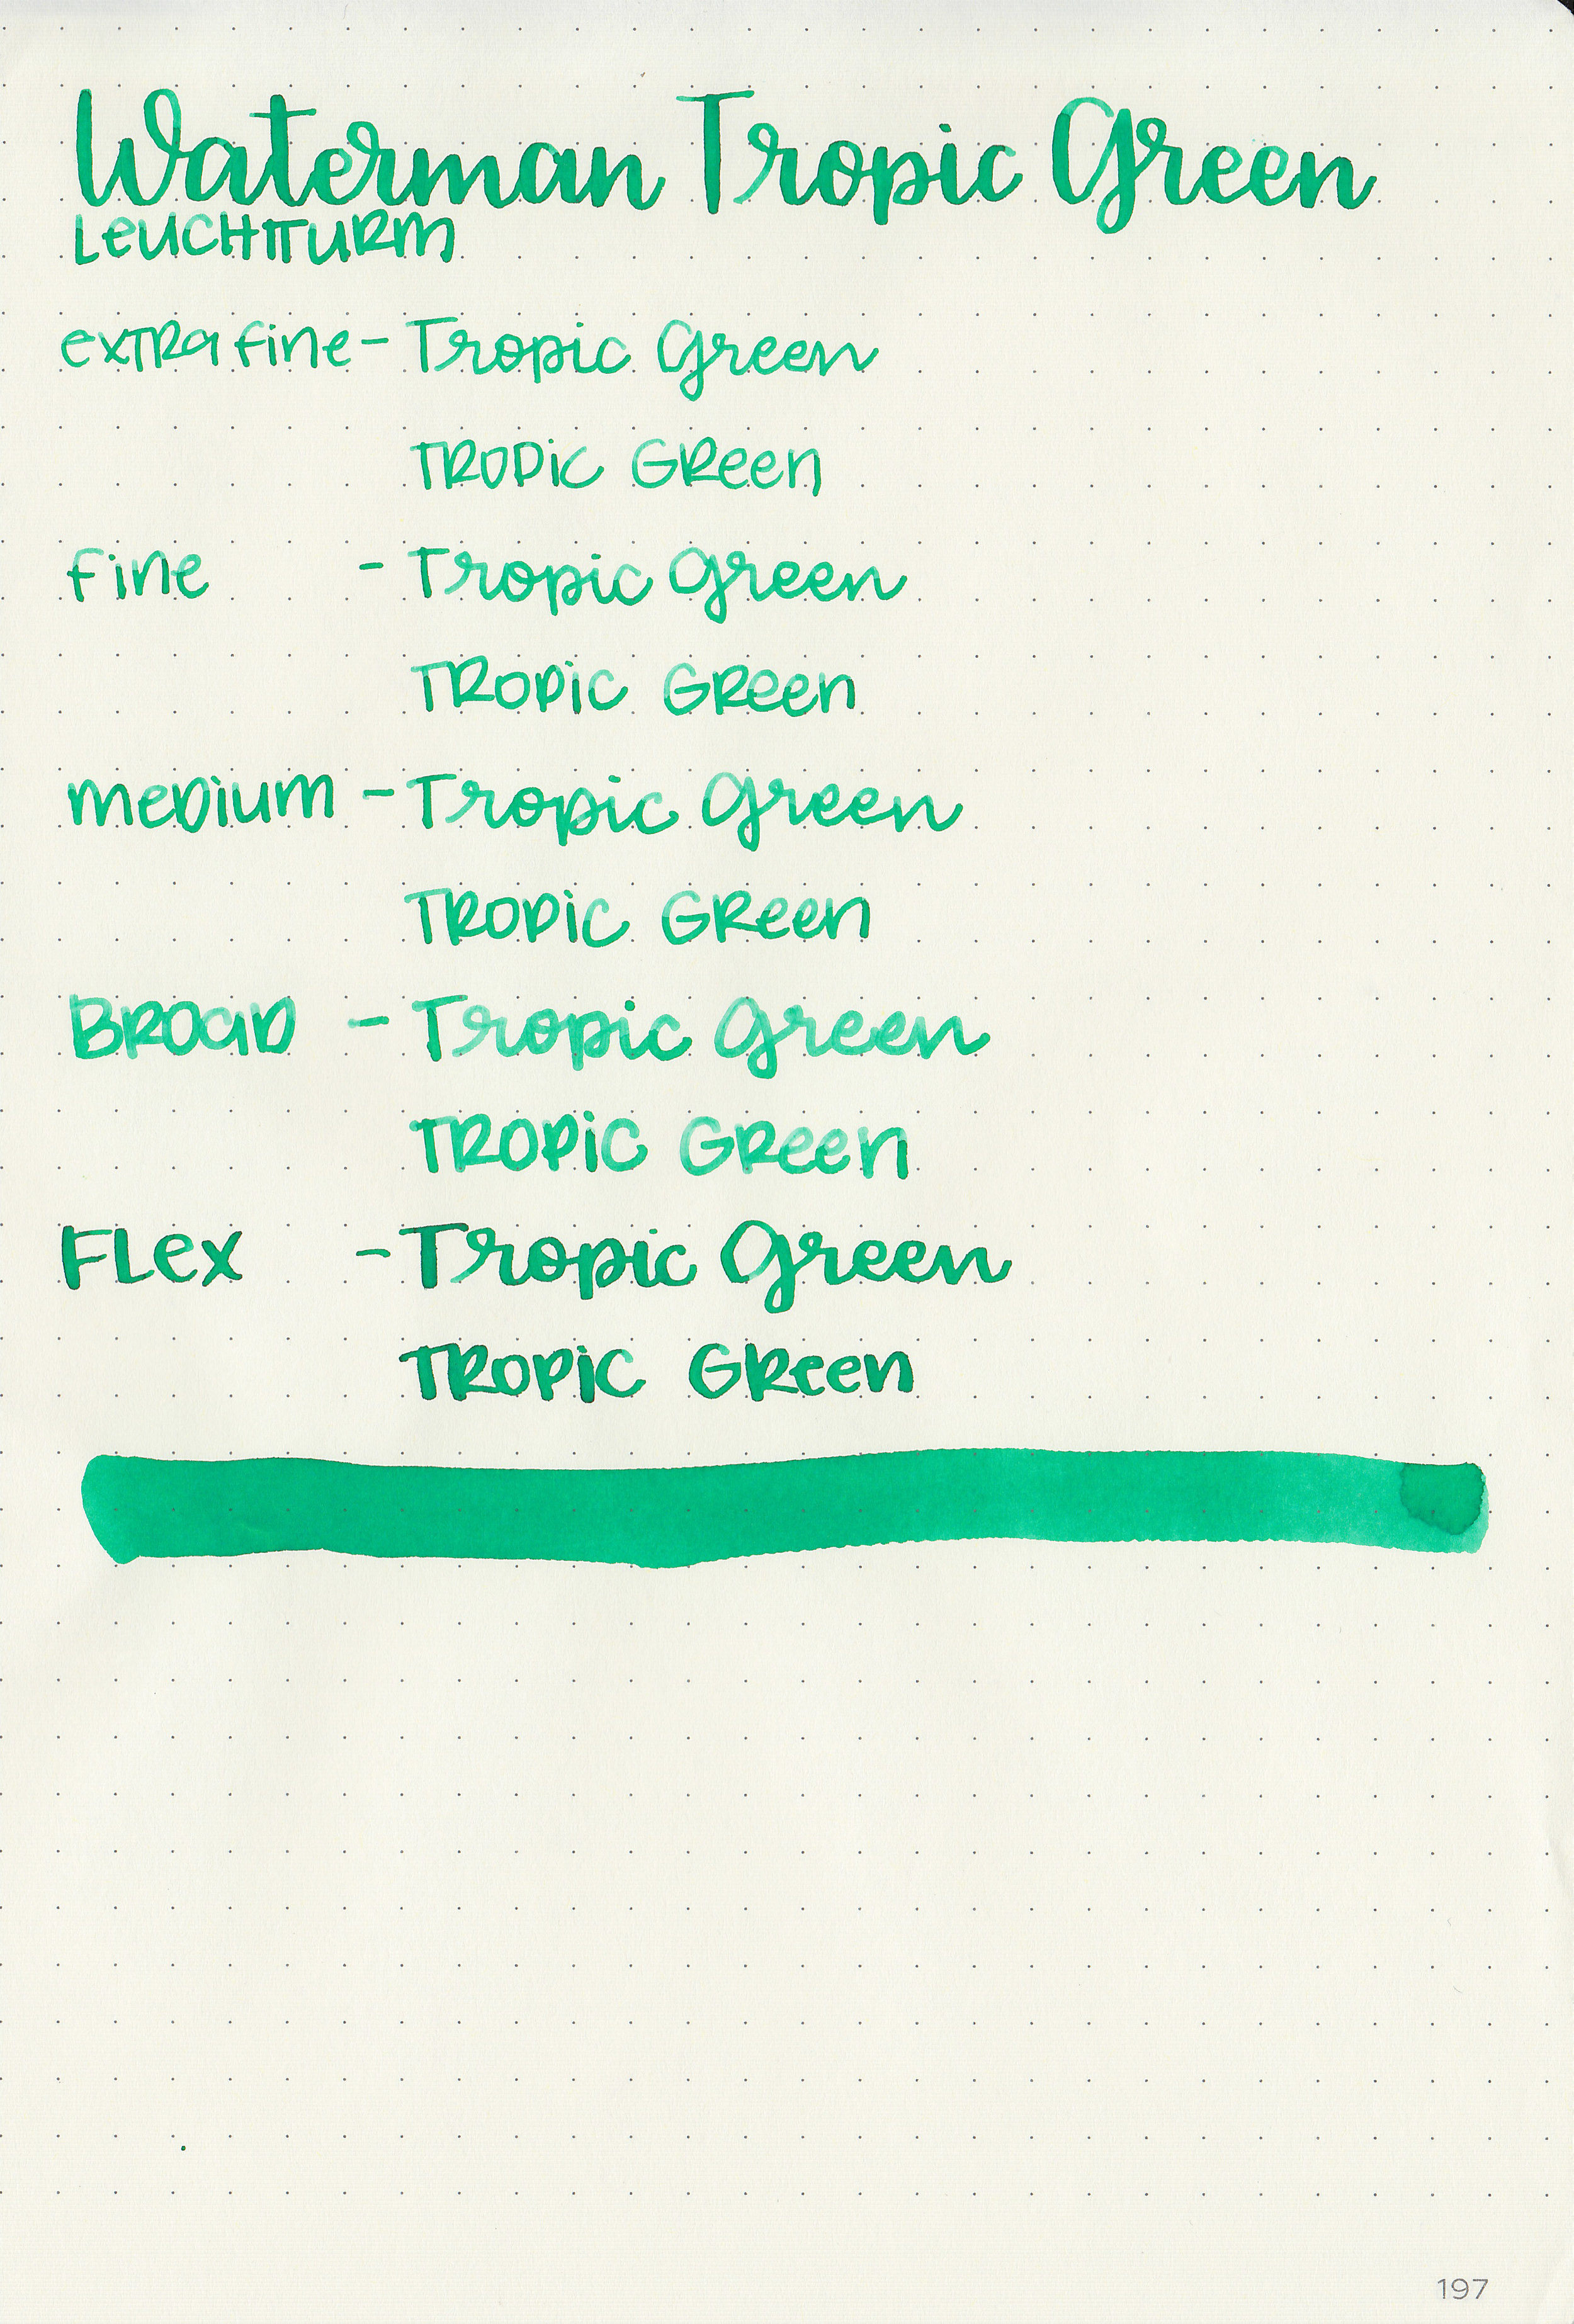 Waterman Tropic Green
LEUCHTTURM
eXTRa fine - Tropic Green
TROPiC GReen
fine - Tropic Green
TROPiC GReen
meDium - Tropic Green
TROPiC GReen
BROaD - Tropic Green
TROPiC GReen
FLex - Tropic Green
TROPiC GReen
197